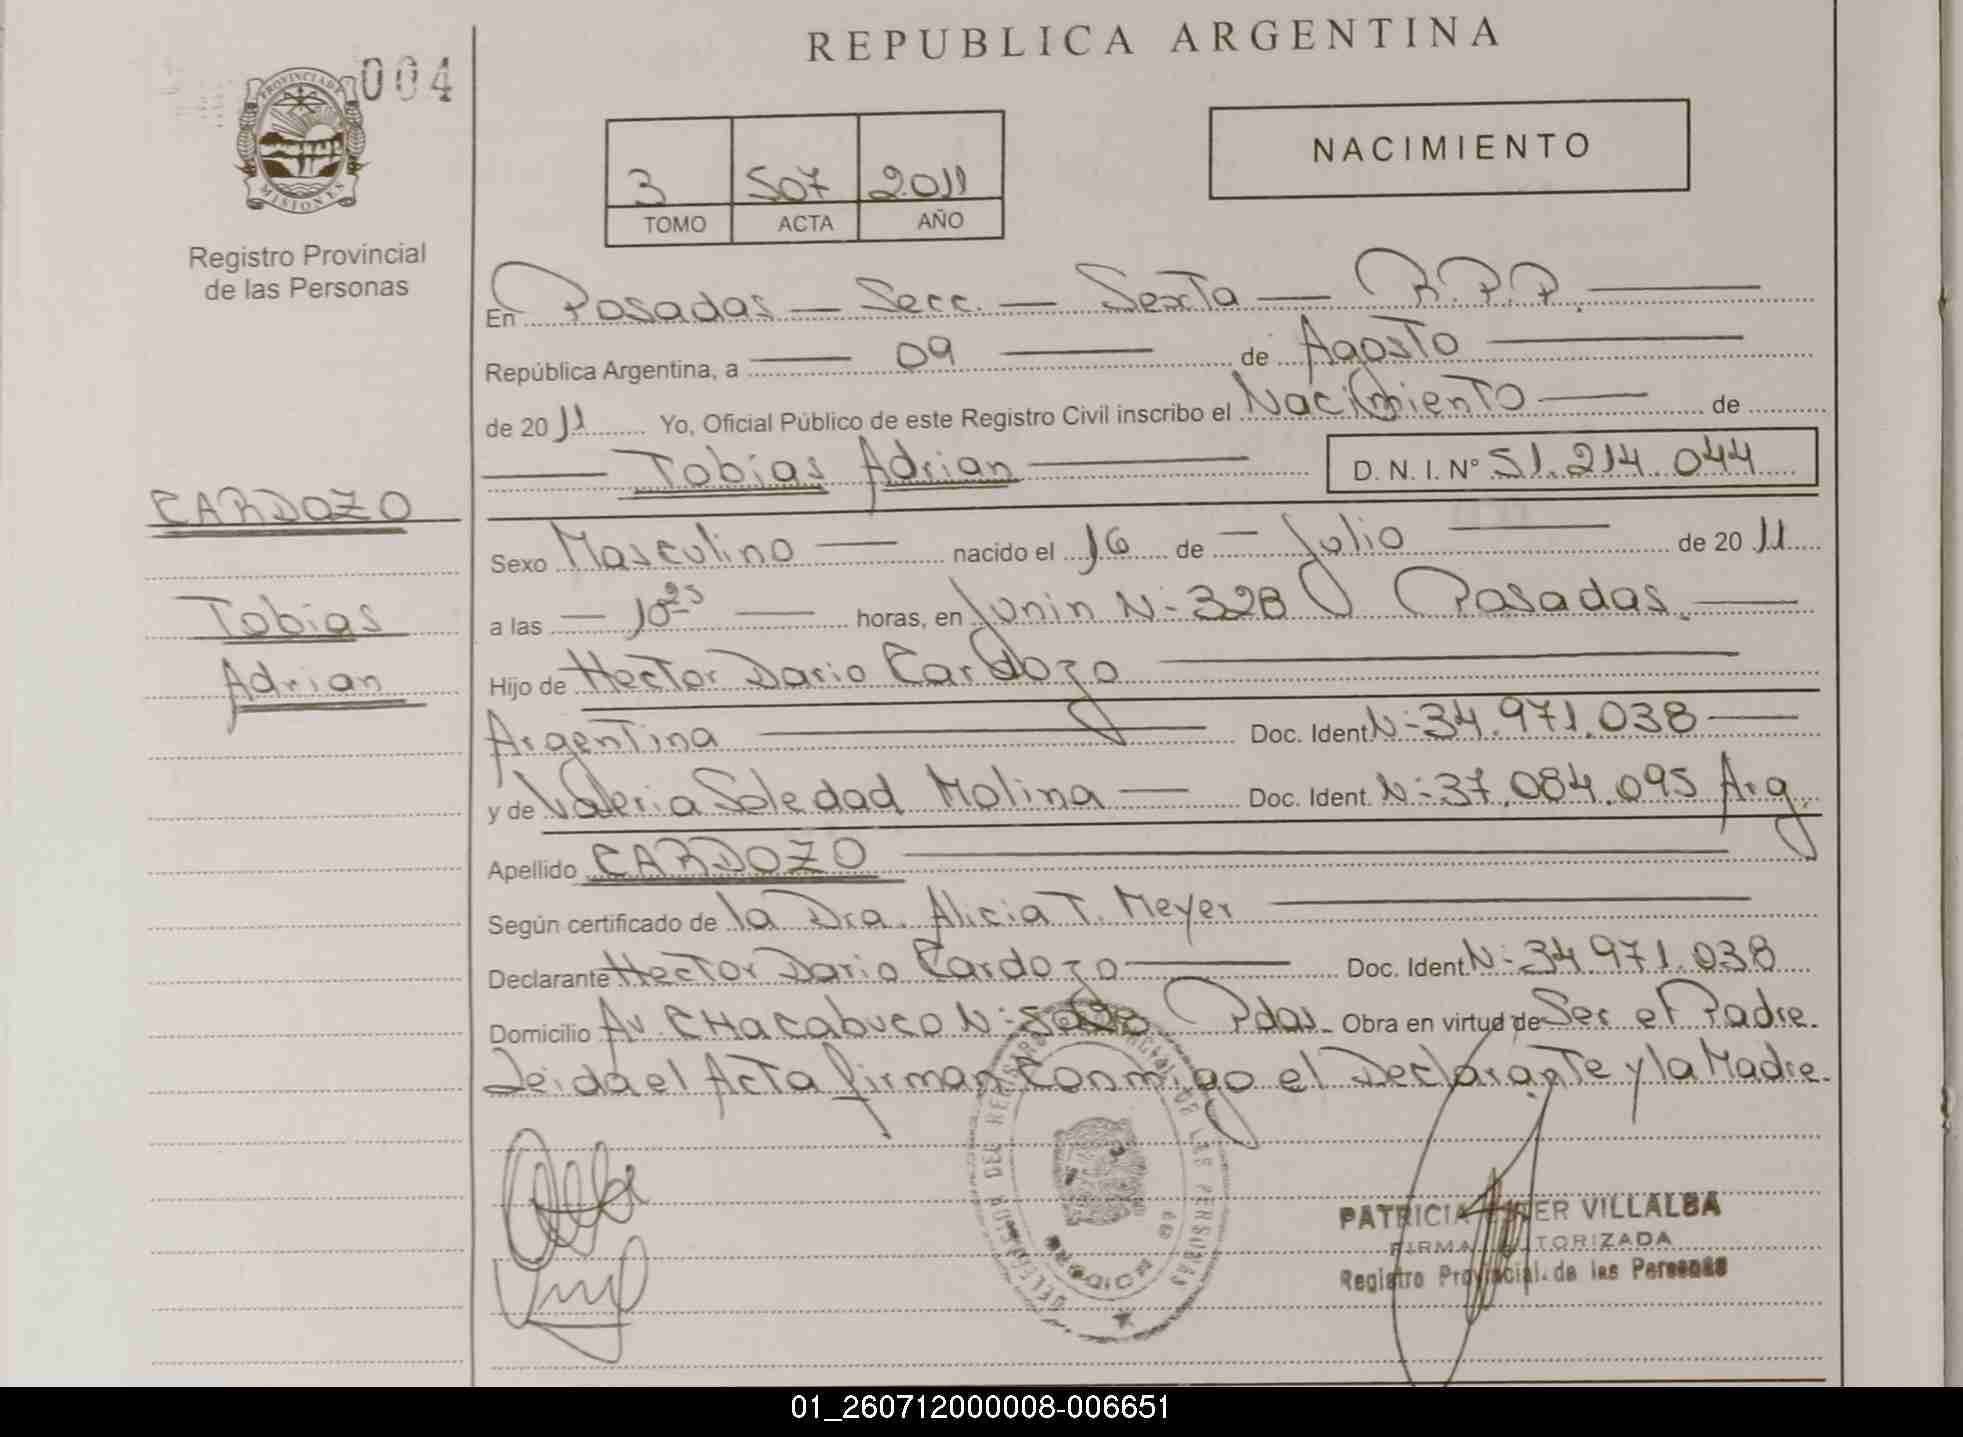 REPUBLICA ARGENTINA
004
PROVINCIA DE MISIONES
Registro Provincial
de las Personas
3 507 2011
TOMO ACTA AÑO
NACIMIENTO
En Posadas — Secc. — Sexta — R.P.P.
República Argentina, a — 09 — de Agosto
de 2011 Yo, Oficial Público de este Registro Civil inscribo el Nacimiento — de
Tobias Adrian — D. N. I. Nº 51.214.044
CARDOZO
Tobias
Adrian
Sexo Masculino — nacido el 16 de — Julio — de 2011
a las — 10 25 — horas, en Junin N: 328 Posadas. —
Hijo de Hector Dario Cardozo —
Argentina — Doc. Ident. N: 34.971.038 —
y de Valeria Soledad Molina — Doc. Ident. N: 37.084.095 Arg.
Apellido CARDOZO —
Según certificado de la Dra. Alicia T. Meyer —
Declarante Hector Dario Cardozo — Doc. Ident. N: 34.971.038
Domicilio Av. CHacabuco N: Pdas. Obra en virtud de Ser el Padre.
Leida el Acta firman conmigo el Declarante y la Madre.
DELEGACION DEL REGISTRO PROVINCIAL DE LAS PERSONAS
PATRICIA VILLALBA
FIRMA AUTORIZADA
Registro Provincial de las Personas
01_260712000008-006651